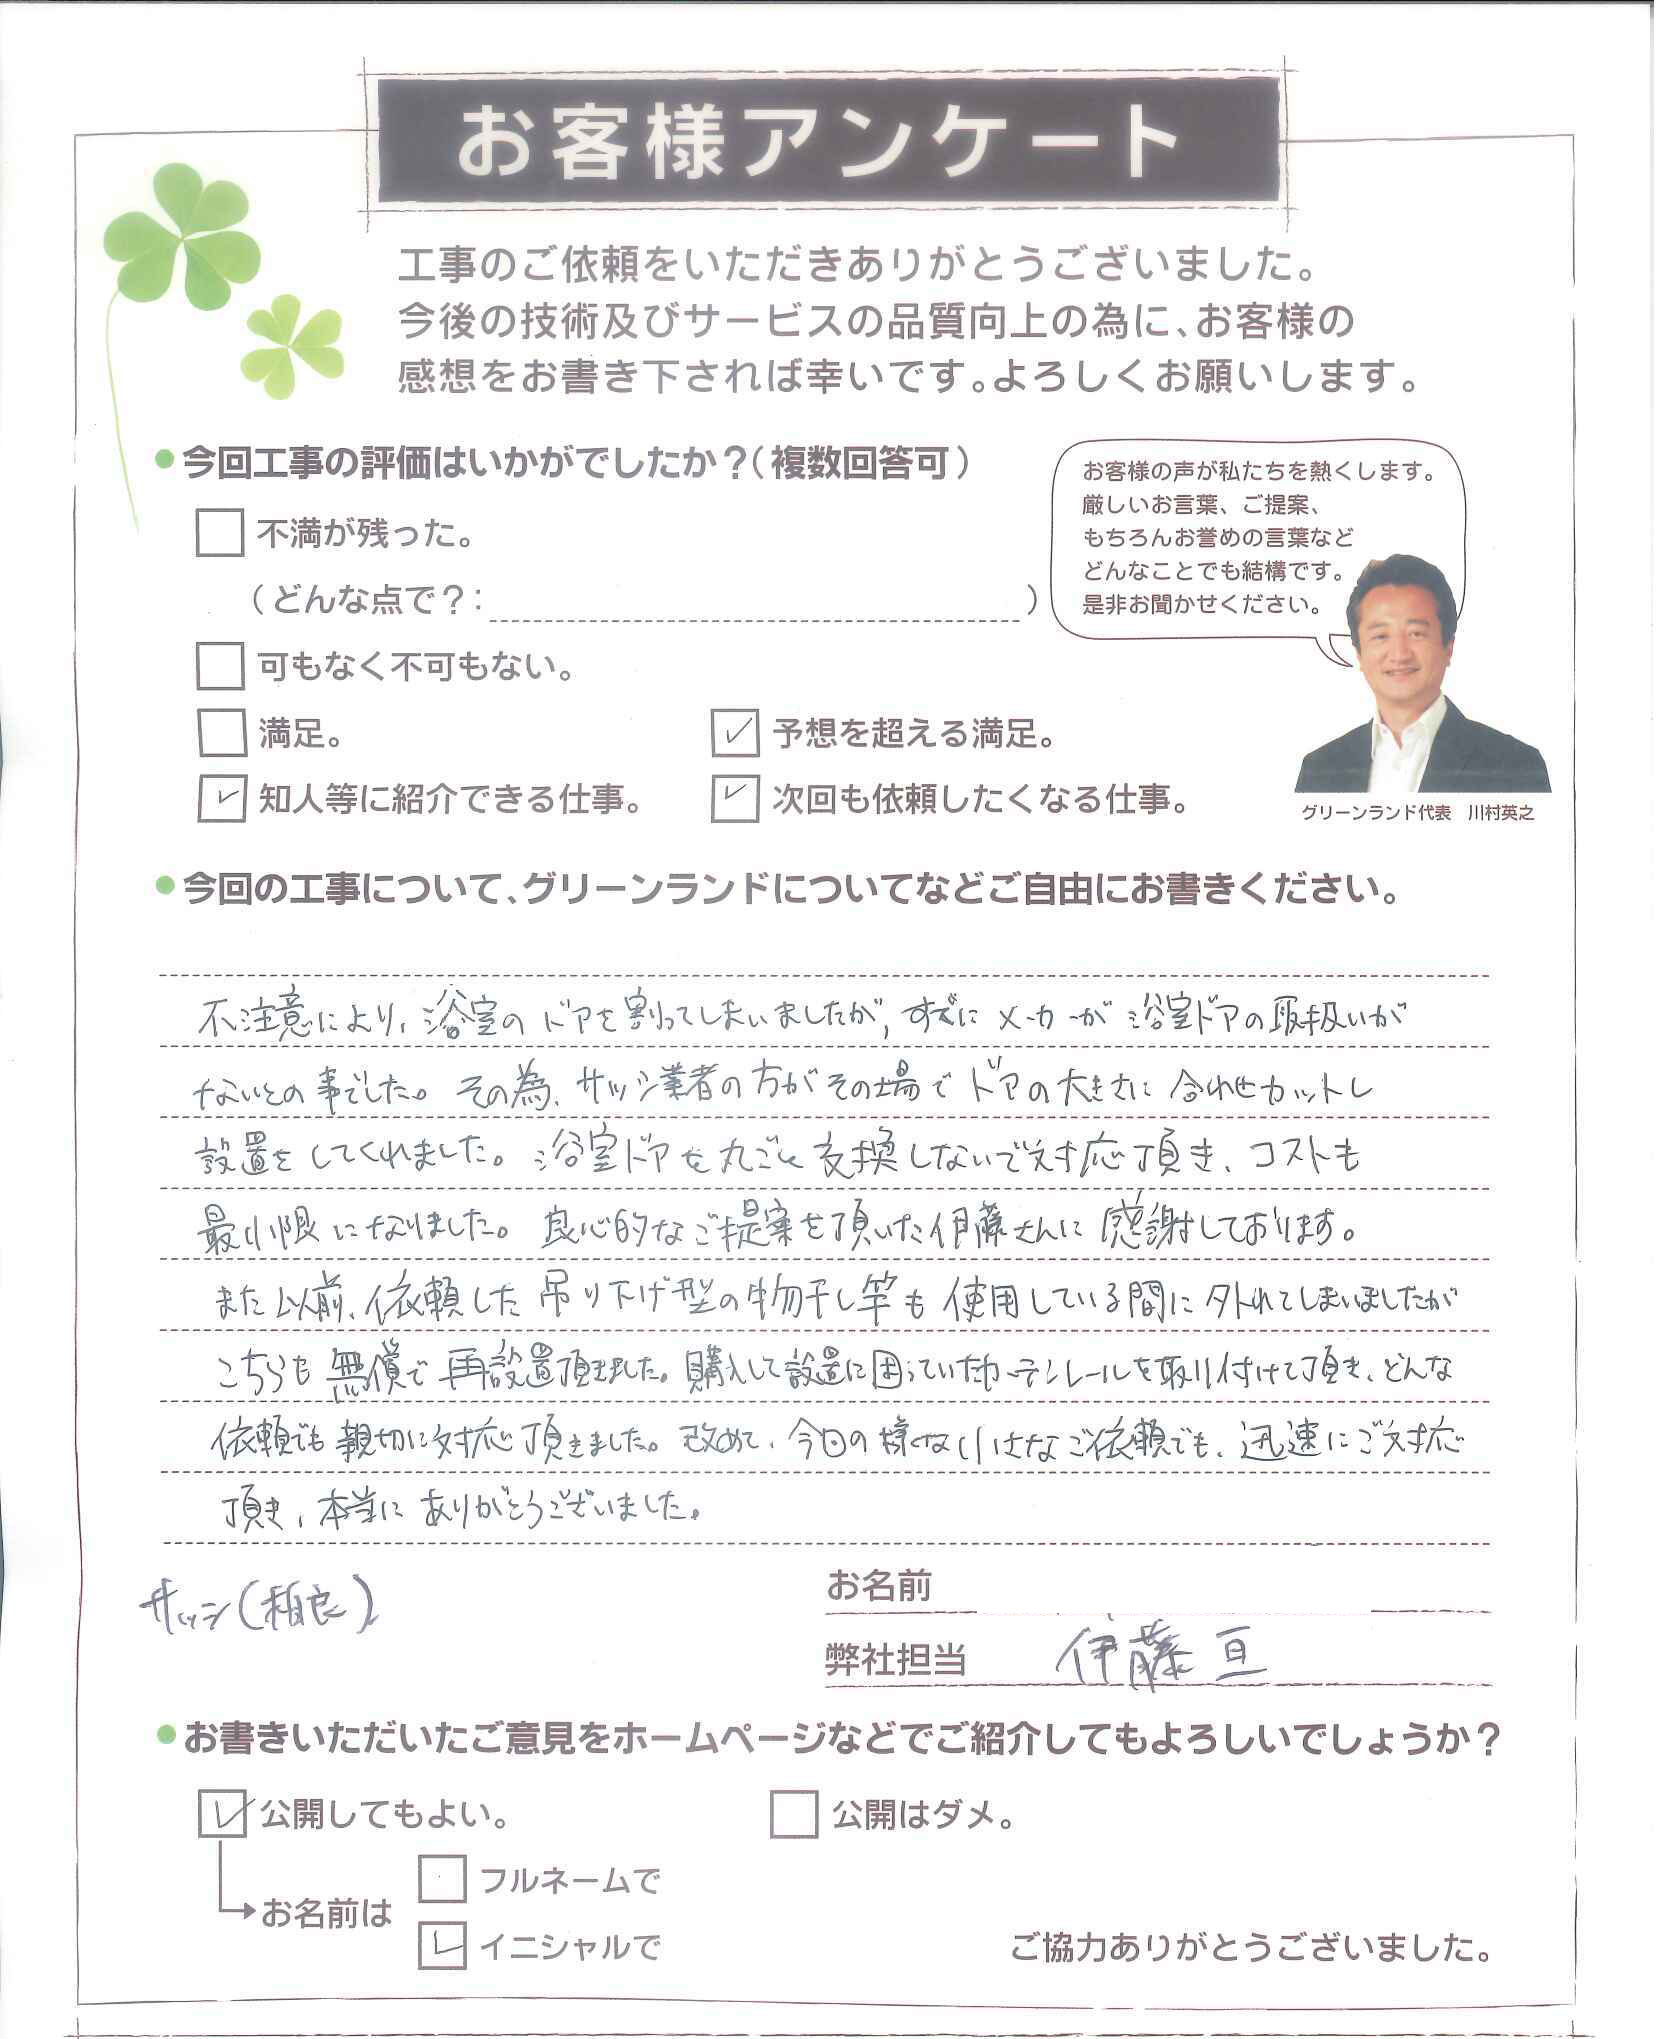 お客様アンケート
工事のご依頼をいただきありがとうございました。
今後の技術及びサービスの品質向上の為に、お客様の
感想をお書き下されば幸いです。よろしくお願いします。
今回工事の評価はいかがでしたか？（複数回答可）
不満が残った。
（どんな点で？：　）
可もなく不可もない。
満足。
予想を超える満足。
知人等に紹介できる仕事。
次回も依頼したくなる仕事。
お客様の声が私たちを熱くします。
厳しいお言葉、ご提案、
もちろんお誉めの言葉など
どんなことでも結構です。
是非お聞かせください。
グリーンランド代表　川村英之
今回の工事について、グリーンランドについてなどご自由にお書きください。
不注意により、浴室のドアを割ってしまいましたが、すでにメーカーが浴室ドアの取扱いが
ないとの事でした。その為、サッシ業者の方がその場でドアの大きさに合わせカットし
設置をしてくれました。浴室ドアを丸ごと交換しないで対応頂き、コストも
最小限になりました。良心的なご提案を頂いた伊藤さんに感謝しております。
また以前、依頼した吊り下げ型の物干し竿も使用している間に外れてしまいましたが
こちらも無償で再設置頂きました。購入して設置に困っていたカーテンレールを取り付けて頂き、どんな
依頼でも親切に対応頂きました。改めて、今回の様な小さなご依頼でも、迅速にご対応
頂き、本当にありがとうございました。
サッシ(相良)
お名前
弊社担当　伊藤 亘
お書きいただいたご意見をホームページなどでご紹介してもよろしいでしょうか？
公開してもよい。
公開はダメ。
お名前は
フルネームで
イニシャルで
ご協力ありがとうございました。